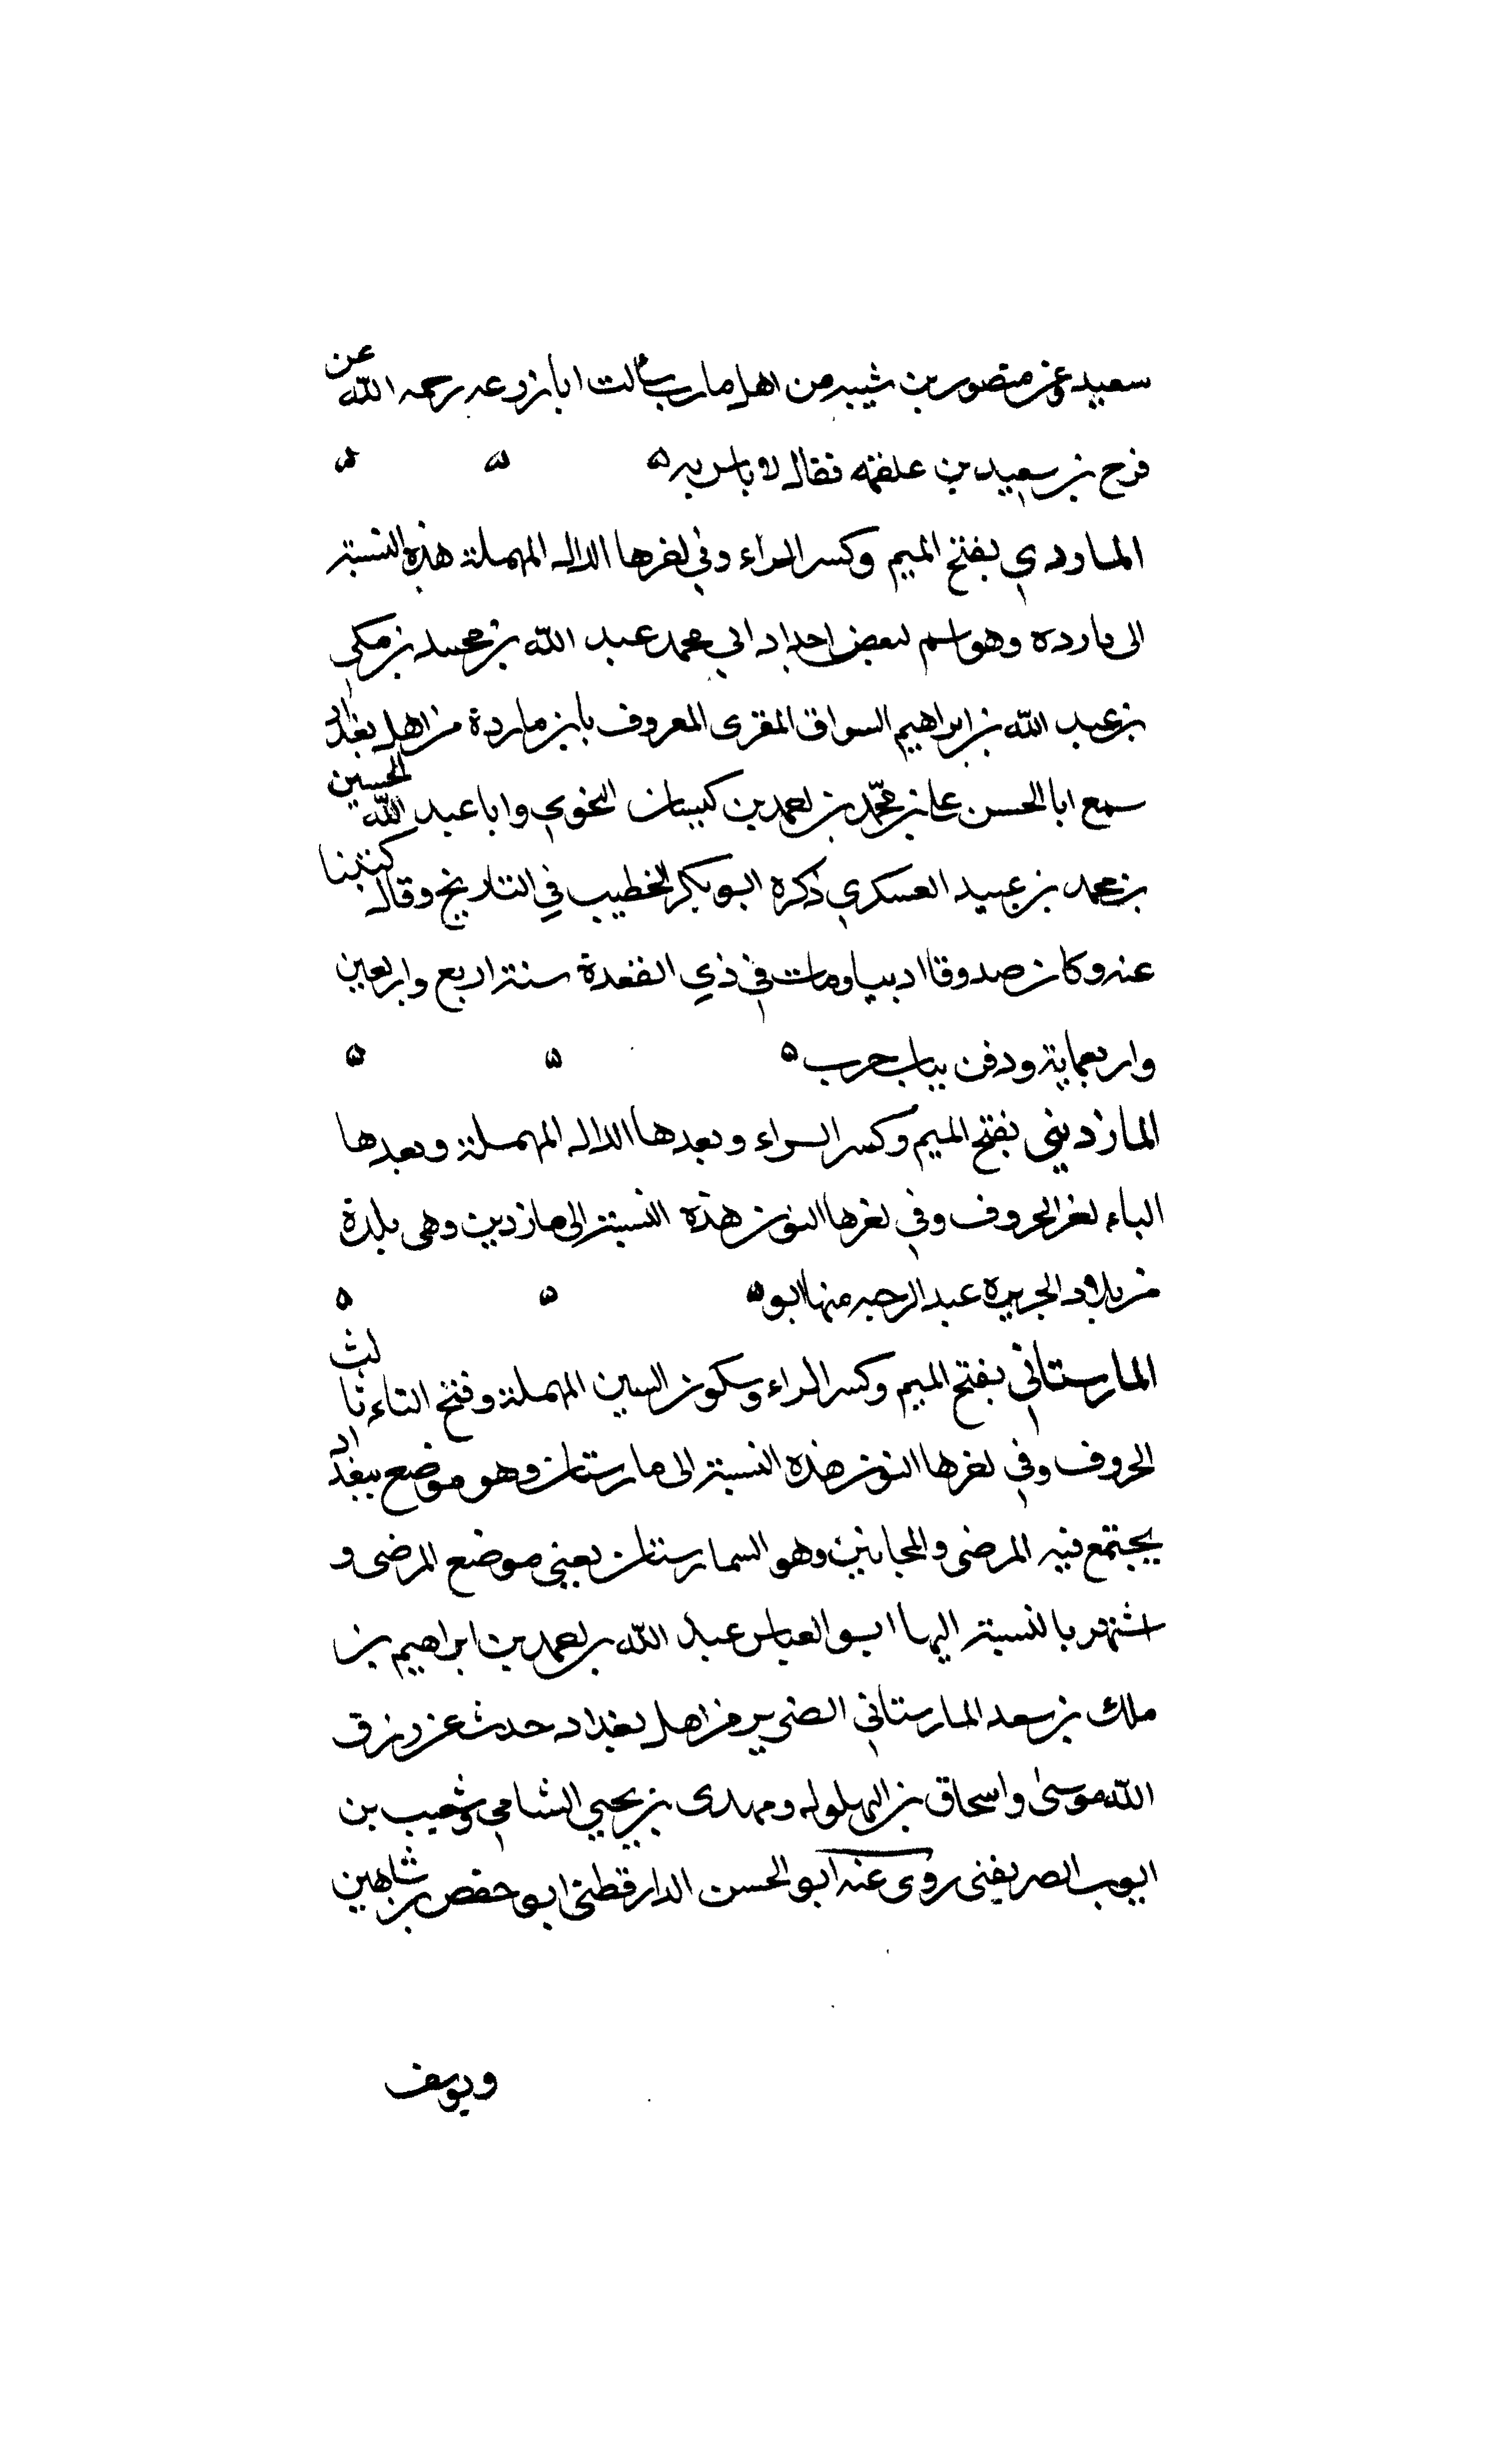 سعيد وعن منصور بن شيبه من اهل مارب سألت ابا زرعه رحمه الله عن
فرج بن سعيد بن علقمه فقال لا باس به ه ه ه
الماردي بفتح الميم وكسر الراء وفي اخرها الدال المهملة هذه النسبة
الى مارده وهو اسم لبعض اجداد ابي محمد عبد الله بن محمد بن مكي
بن عبد الله بن ابراهيم السواق المقرى المعروف بابن ماردة من اهل بغداد
سمع ابا الحسن على بن محمد بن احمد بن كيسان النحوي وابا عبد الله الحسين
بن محمد بن عبيد العسكري ذكره ابو بكر الخطيب في التاريخ وقال كتبنا
عنه وكان صدوقا اديبا ومات في ذي القعدة سنة اربع واربعين
واربعماية ودفن بباب حرب ه ه ه
الماردينى بفتح الميم وكسر الراء وبعدها الدال المهملة وبعدها
الياء اخر الحروف وفي اخرها النون هذه النسبة الى ماردين وهى بلدة
من بلاد الجزيره عبد الرحبه منها ابو ه ه ه
المارستاني بفتح الميم وكسر الراء وسكون السين المهملة وفتح التاء ثالث
الحروف وفي اخرها النون هذه النسبة الى مارستان وهو موضع ببغداد
يجتمع فيه المرضى والمجانين وهو السمارستان يعنى موضع المرضى و
اشتهر بالنسبة اليها ابو العباس عبد الله بن احمد بن ابراهيم بن
ملك بن سعد المارستاني الضرير من اهل بغداد حدث عن رزق
الله موسى واسحاق بن البهلول ومهدى بن يحيي الشامي وشعيب بن
ايوب الصريفنى روى عنه ابو الحسن الدارقطنى ابو حفص بن شاهين
ويوسف